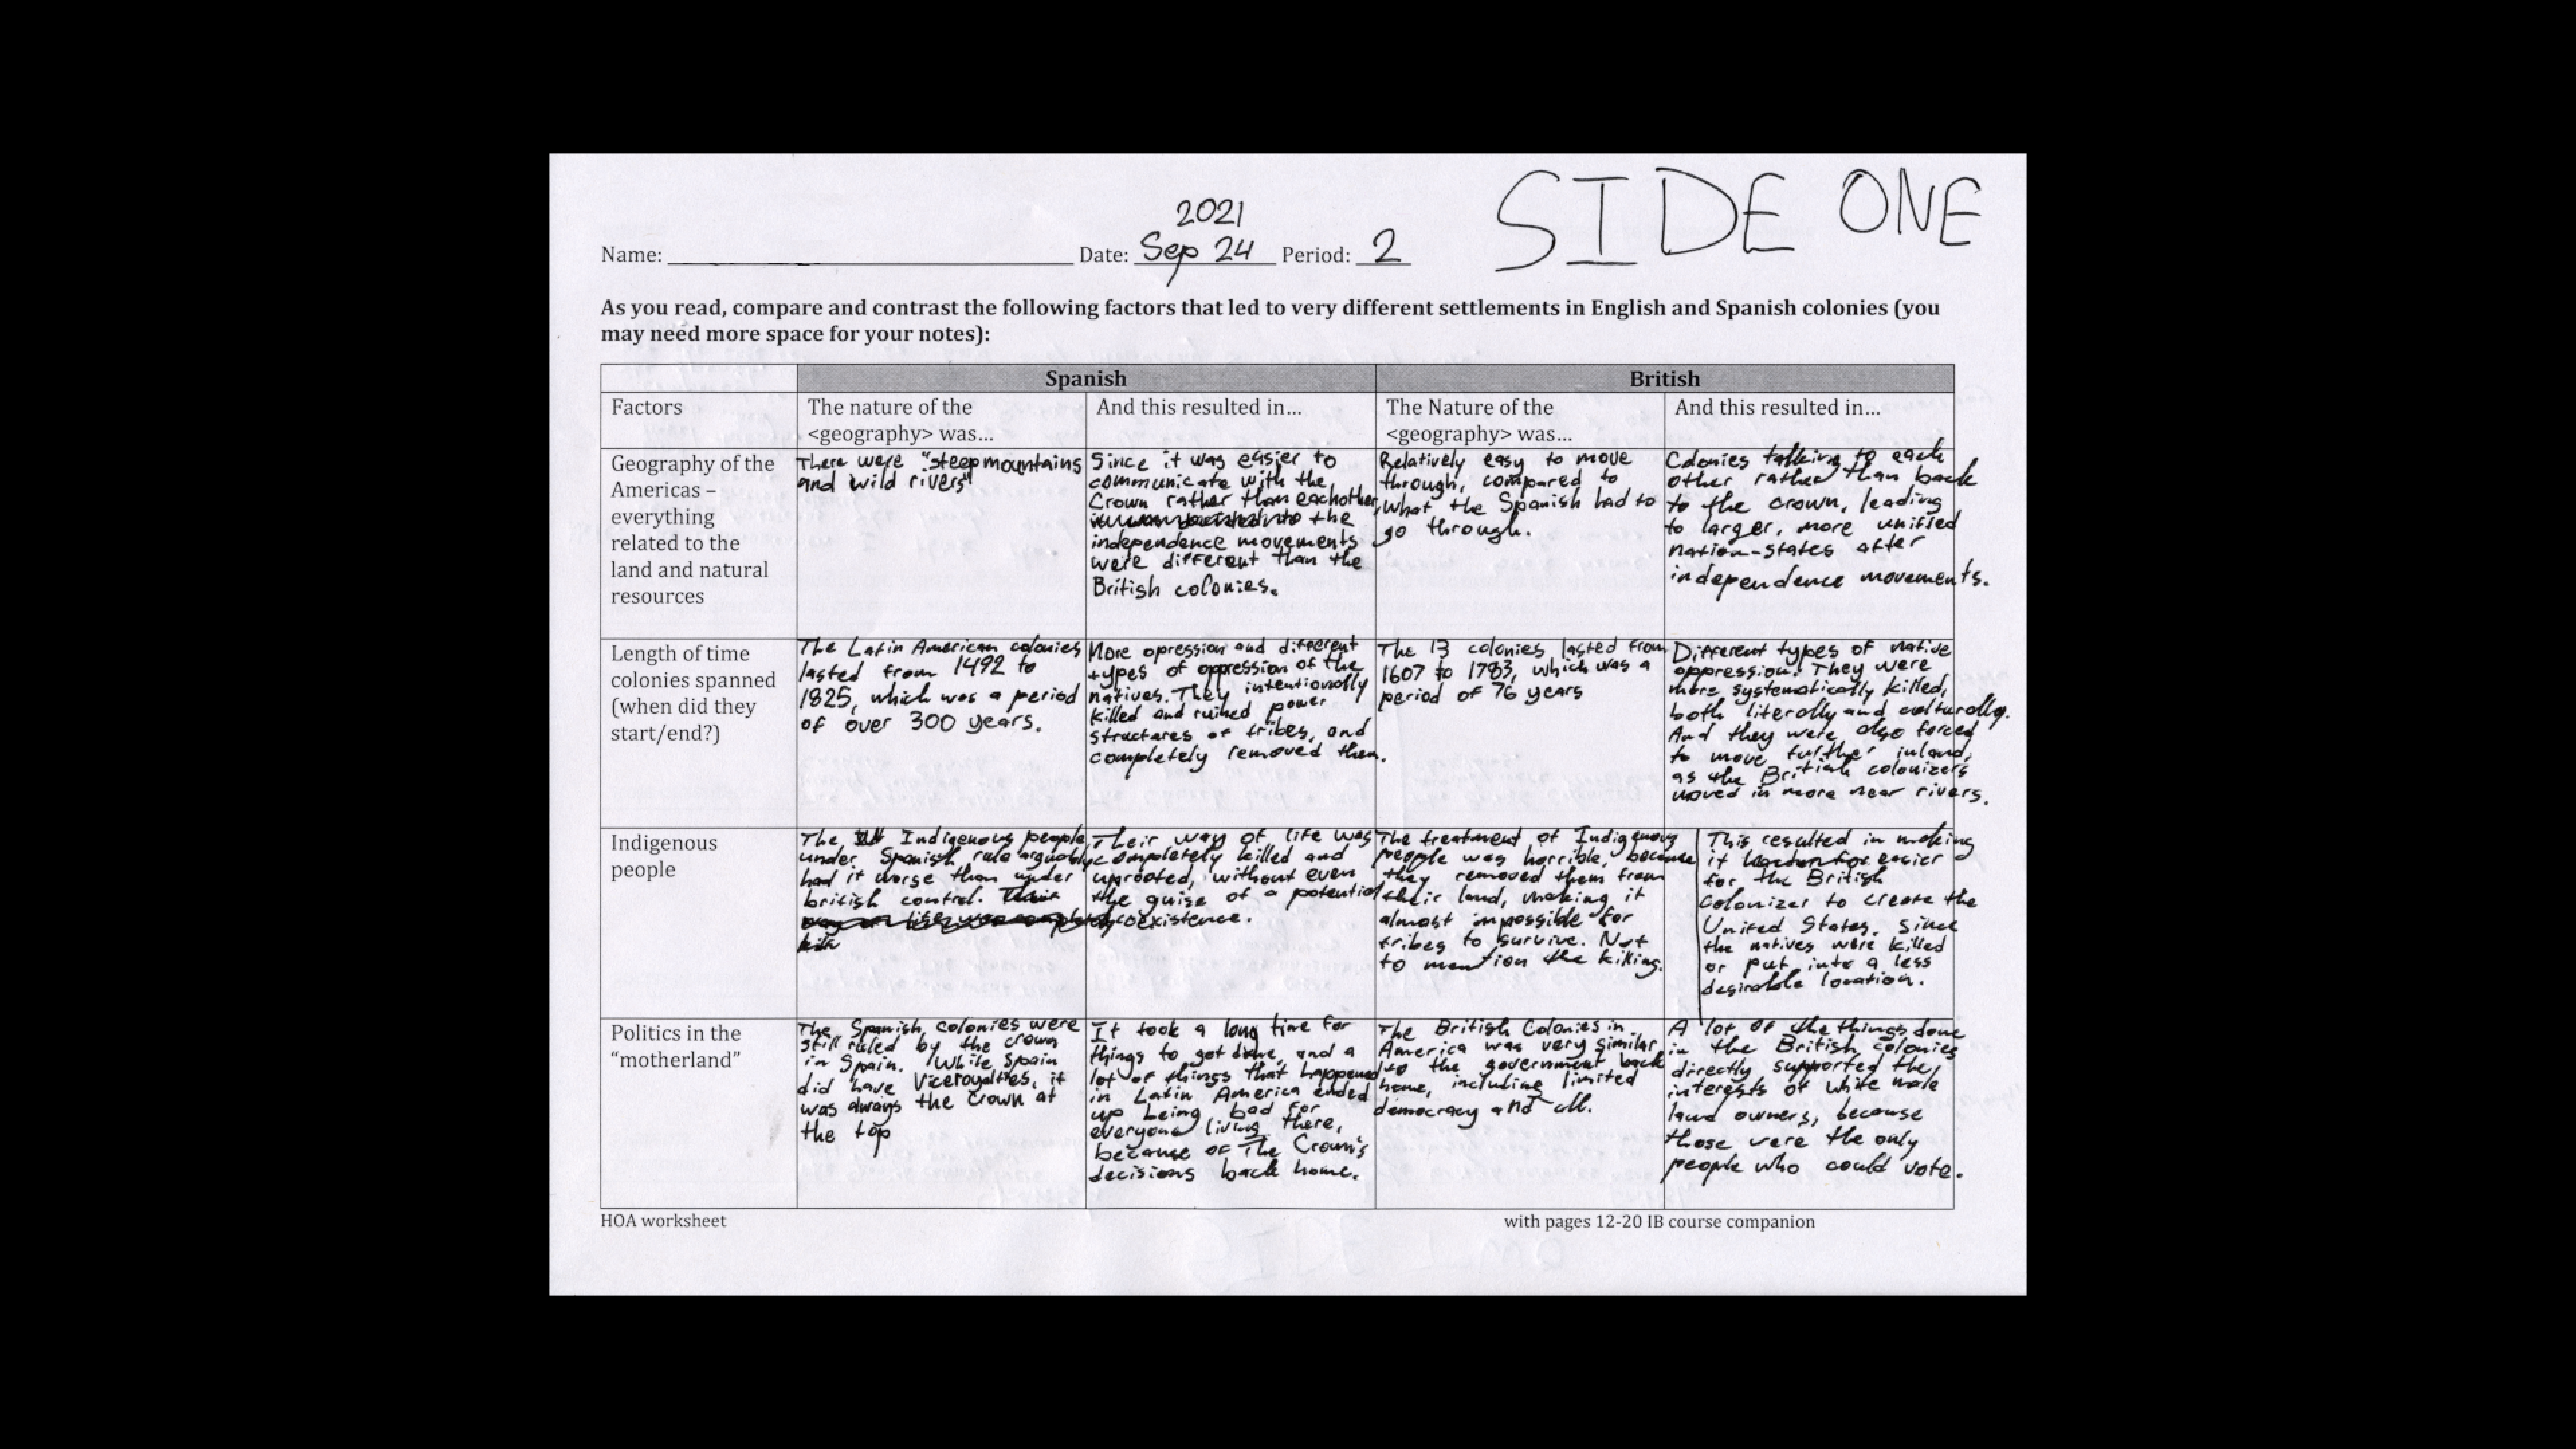 SIDE ONE
2021
Name: Date: Sep 24 Period: 2
As you read, compare and contrast the following factors that led to very different settlements in English and Spanish colonies (you
may need more space for your notes):
Spanish
British
Factors
The nature of the
<geography> was...
And this resulted in...
The Nature of the
<geography> was...
And this resulted in...
Geography of the
Americas –
everything
related to the
land and natural
resources
There were "steep mountains
and wild rivers"
Since it was easier to
communicate with the
Crown rather than eachother,
the
independence movements
were different than the
British colonies.
Relatively easy to move
through, compared to
what the Spanish had to
go through.
Colonies talking to each
other rather than back
to the crown, leading
to larger, more unified
nation-states after
independence movements.
Length of time
colonies spanned
(when did they
start/end?)
The Latin American colonies
lasted from 1492 to
1825, which was a period
of over 300 years.
More opression and different
types of oppression of the
natives. They intentionally
killed and ruined power
structures of tribes, and
completely removed them.
The 13 colonies lasted from
1607 to 1783, which was a
period of 76 years
Different types of native
oppression. They were
more systematically killed,
both literally and culturally.
And they were also forced
to move further inland,
as the British colonizers
moved in more near rivers.
Indigenous
people
The Indigenous people
under Spanish rule arguably
had it worse than under
british control. Their
way of life was completely
Their way of life was
completely killed and
uprooted, without even
the guise of a potential
coexistence.
The treatment of Indigenous
people was horrible, because
they removed them from
their land, making it
almost impossible for
tribes to survive. Not
to mention the killing.
This resulted in making
it harder for easier
for the British
Colonizer to create the
United States, since
the natives were killed
or put into a less
desirable location.
Politics in the
“motherland”
The Spanish colonies were
still ruled by the crown
in Spain. While Spain
did have Viceroyalties, it
was always the crown at
the top
It took a long time for
things to get done, and a
lot of things that happened
in Latin America ended
up being bad for
everyone living there,
because of The Crown's
decisions back home.
The British Colonies in
America was very similar
to the government back
home, including limited
democracy and all.
A lot of the things done
in the British colonies
directly supported the
interests of white male
land owners, because
those were the only
people who could vote.
HOA worksheet
with pages 12-20 IB course companion